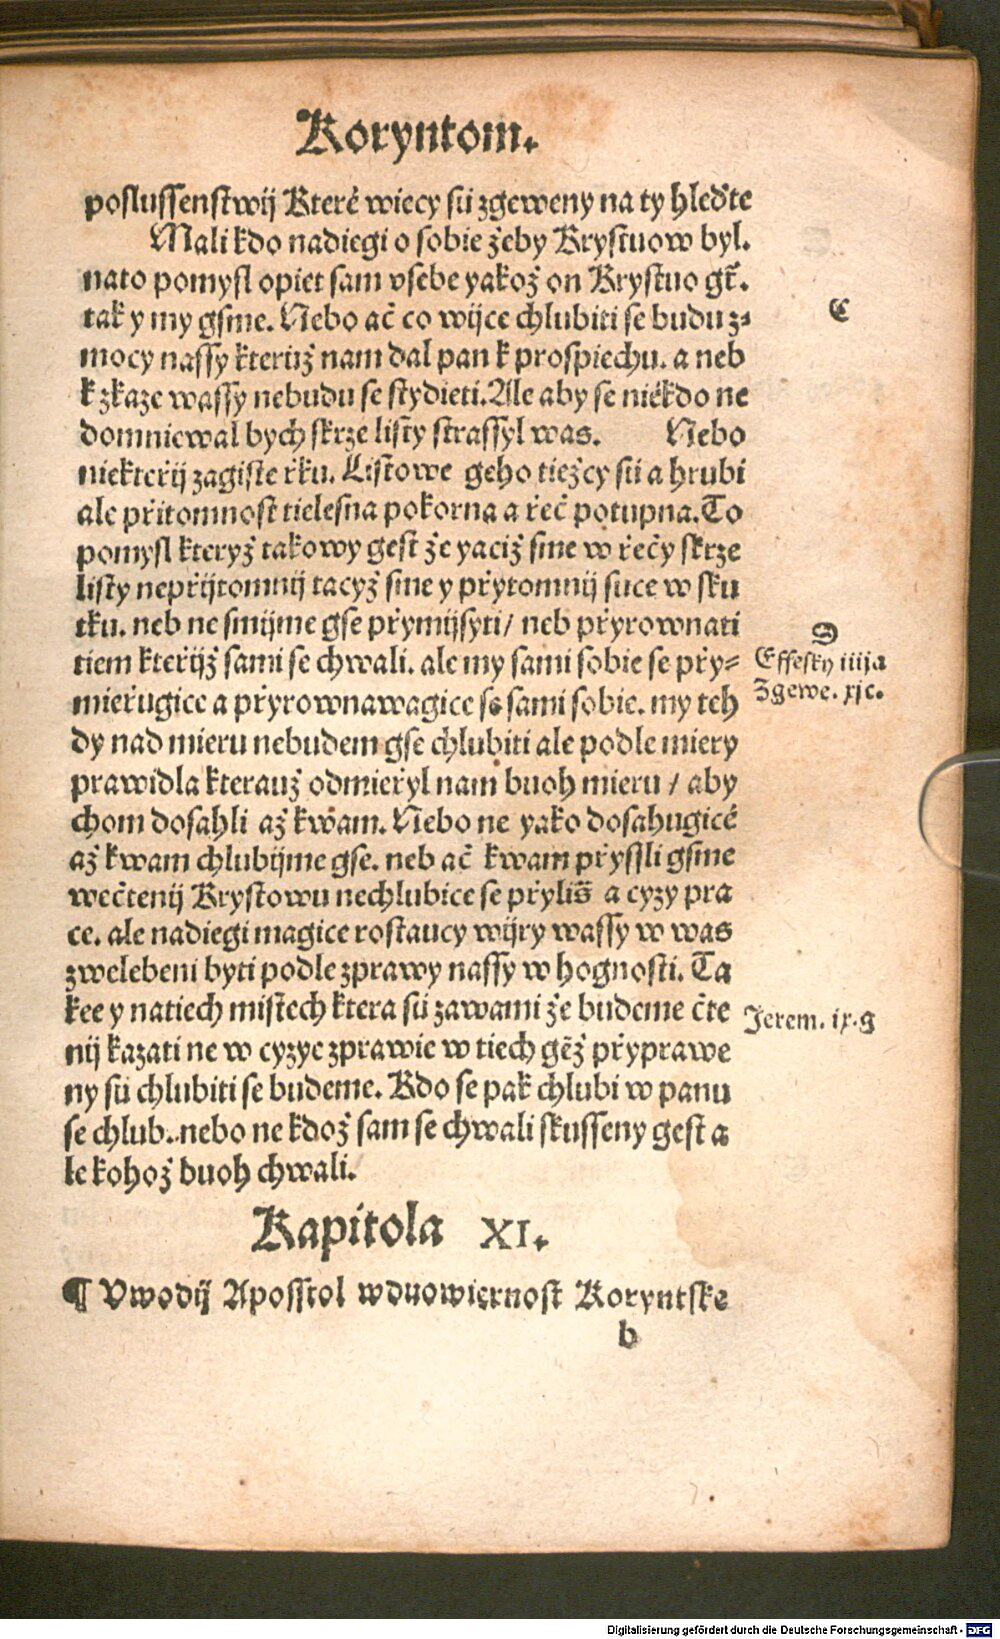 Koryntom.
poslussenstwij Kteréž wiecy sú zgeweny na ty hleďte
Mali kdo nadiegi o sobie žeby Krystuow byl.
nato pomysl opiet sam vsebe yakož on Krystuo gt̃.
tak y my gsme. Nebo ač co wijce chlubiti se budu z
mocy nassy kterúž nam dal pan k prospiechu. a neb
k zkaze wassy nebudu se stydieti. Ale aby se niekdo ne
domniewal bych skrze listy strassyl was. Nebo
niekteřij zagiste řku. Listowe geho tiežcy sú a hrubi
ale přitomnost tielesna pokorna a řeč potupna. To
pomysl kteryž takowy gest že yaciž sme w řečy skrze
listy nepřijtomnij tacyž sme y přytomnij suce w sku
tku. neb ne smijme gse přymijsyti / neb přyrownati
tiem kteřijž sami se chwali. ale my sami sobie se při=
mieřugice a přyrownawagice se sami sobie. my teh
dy nad mieru nebudem gse chlubiti ale podle miery
prawidla kterauž odmieřyl nam buoh mieru / aby
chom dosahli až kwám. Nebo ne yako dosahugicé
až kwam chlubijme gse. neb ač kwam přyssli gsme
wečtenij Krystowu nechlubice se přyliš a cyzy pra
ce. ale nadiegi magice rostaucy wijry wassy w was
zwelebeni byti podle zprawy nassy w hognosti. Ta
kee y natiech mistech ktera sú zawami že budeme čte
nij kazati ne w cyzye zprawie w tiech gēž přyprawe
ny sú chlubiti se budeme. Kdo se pak chlubi w panu
se chlub. nebo ne kdož sam se chwali skusseny gest a
le kohož buoh chwali.
Kapitola XI.
¶ Vwodij Aposstol wduowiernost Koryntske
b
C
D
Effesky iiija
Zgewe. xjc.
Jerem. ix.g
Digitalisierung gefördert durch die Deutsche Forschungsgemeinschaft - DFG